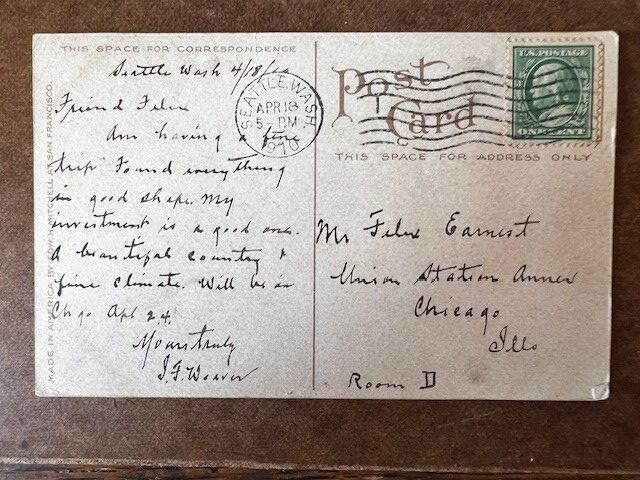 THIS SPACE FOR CORRESPONDENCE
Seattle Wash 4/18/10
Friend Felix
Am having a fine
trip Found everything
in good shape. My
investment is a good one.
A beautiful country &
fine climate. Will be in
Chgo Apl 24.
Yours truly
J.F. Weaver
MADE IN AMERICA BY EDW. H. MITCHELL AT SAN FRANCISCO.
SEATTLE, WASH.
APR 18
5-PM
1910
Post
Card
THIS SPACE FOR ADDRESS ONLY
U.S. POSTAGE
ONE CENT
Mr Felix Earnest
Union Station Annex
Chicago
Ills
Room D